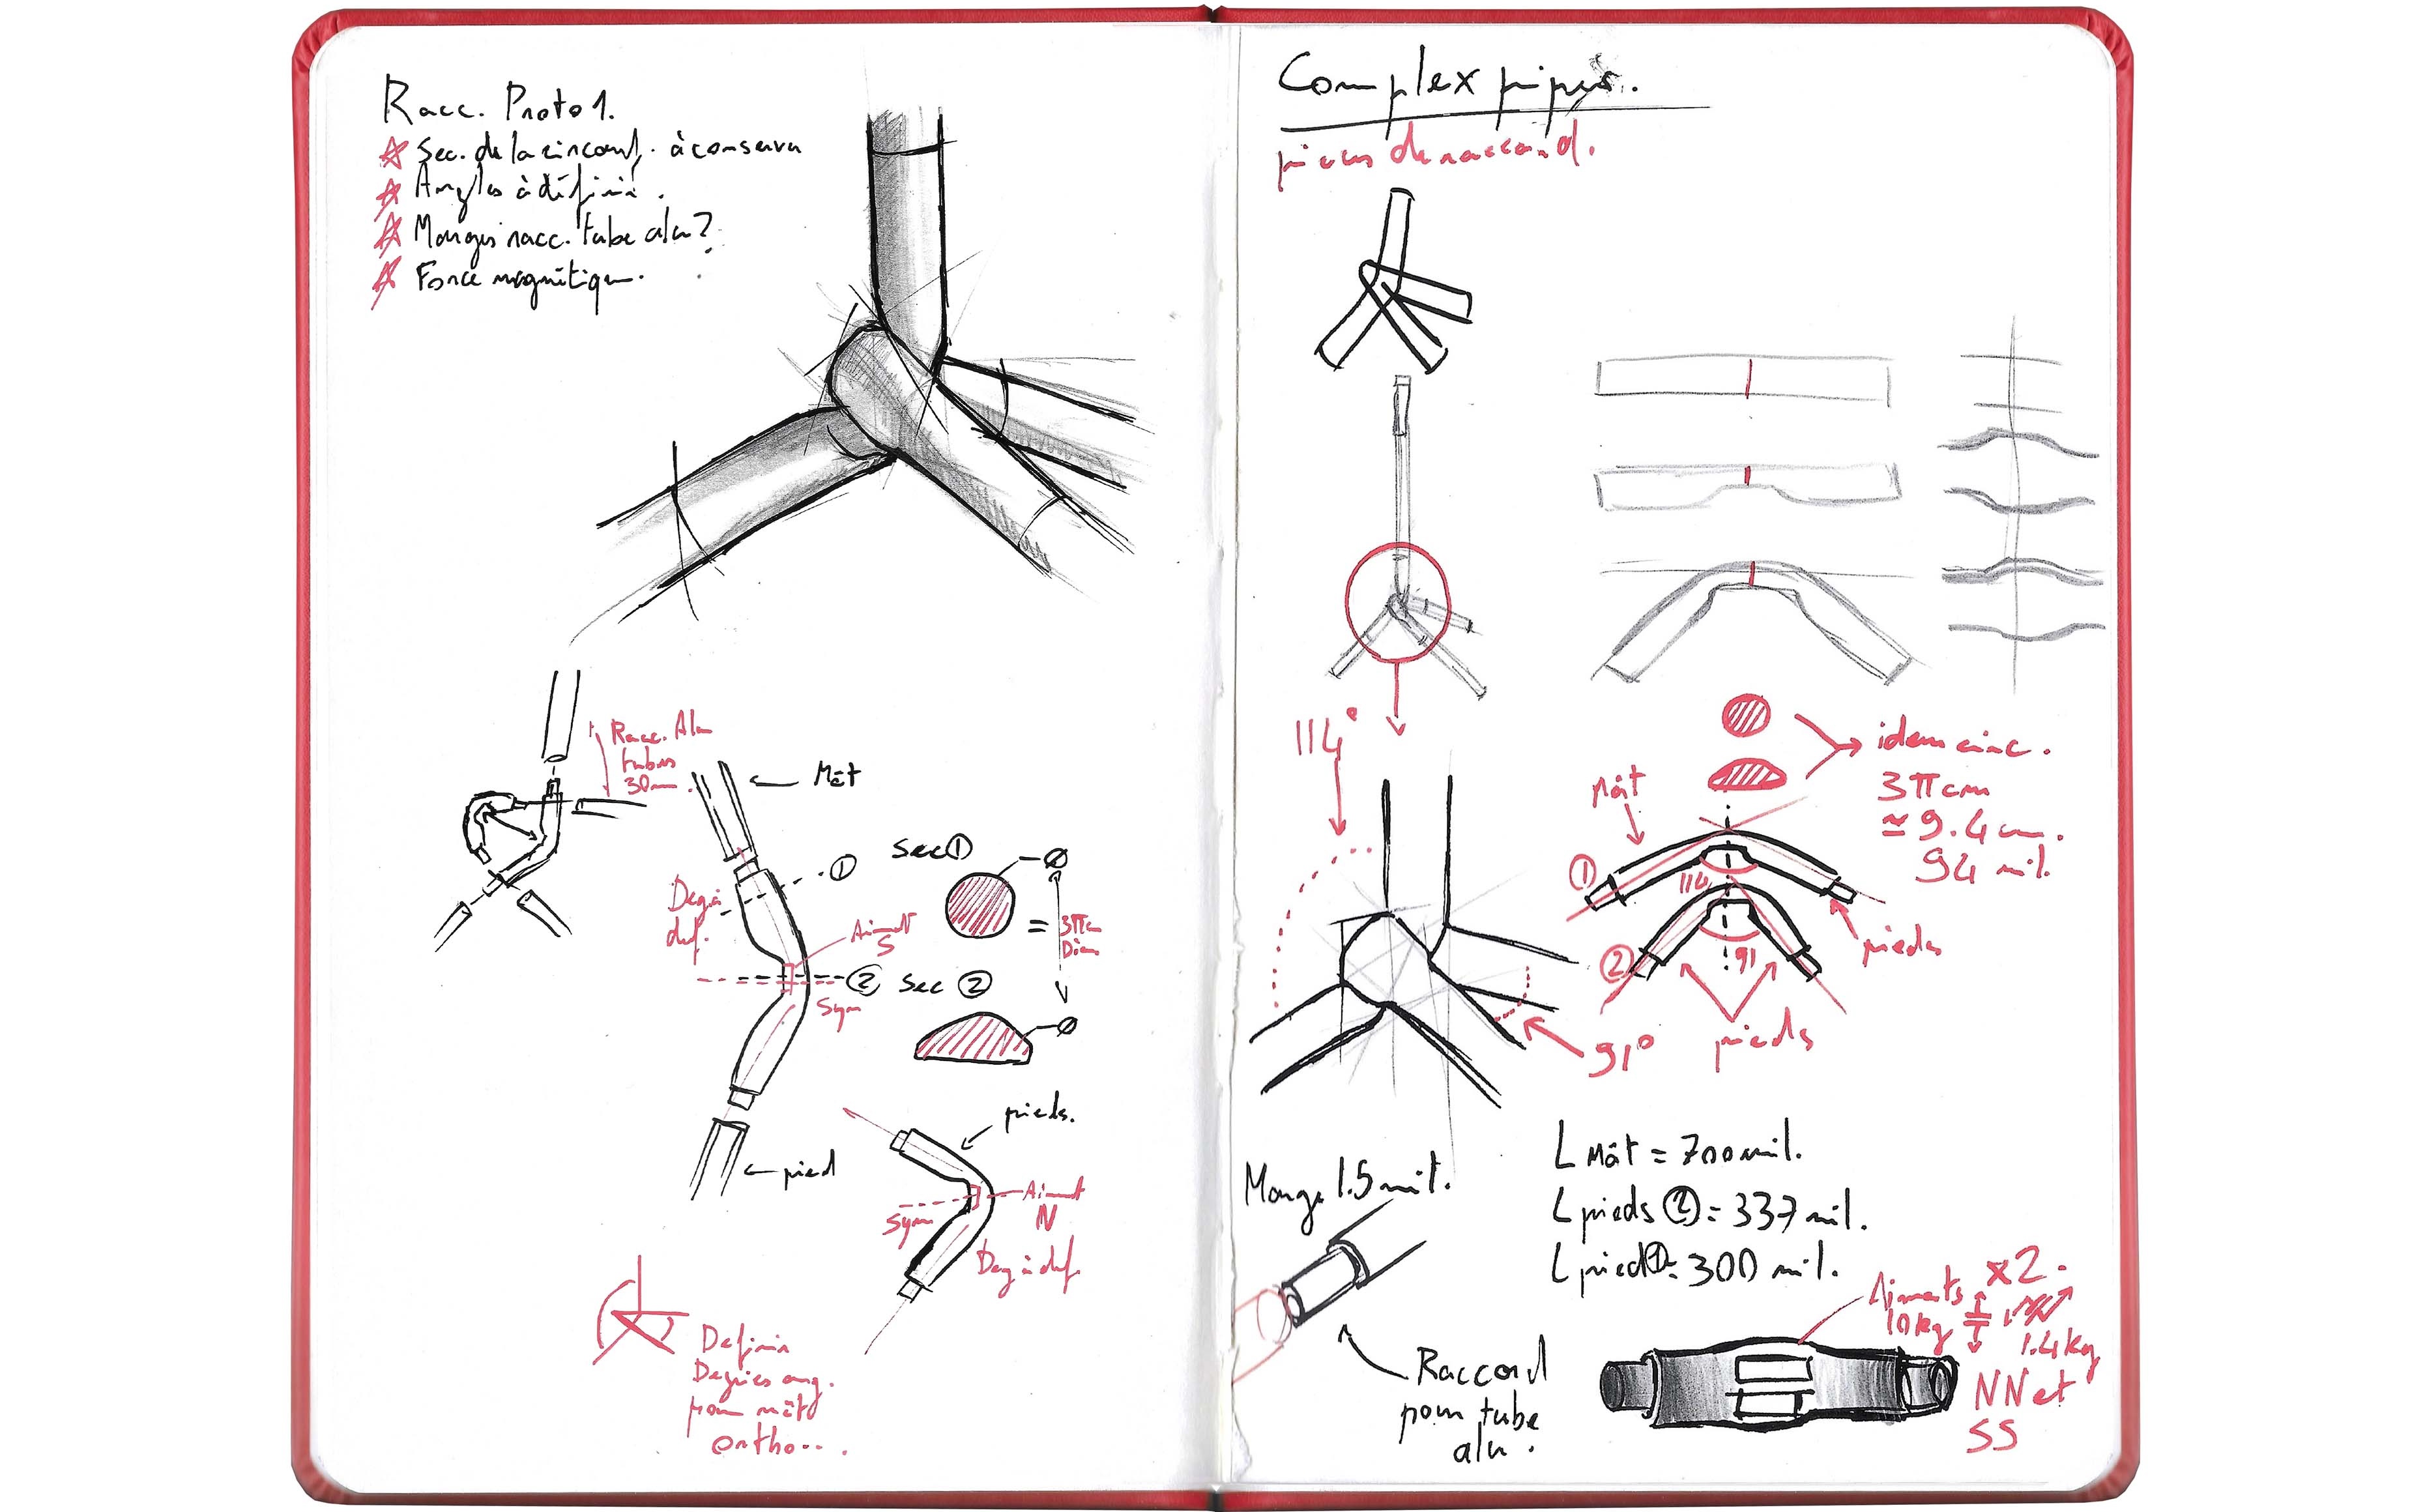 Racc. Proto 1.
Sec. de la circonf. à conserver
Angles à définir.
Marges racc. tube alu ?
Force magnétique.
Racc. Alu
tubes
30
Mât
①
Sec ①
Ø
Deg à
def.
Aimant
S
= 3π
② Sec ②
Sym
Ø
pieds.
pied
Aimant
N
Sym
Deg à def.
Définir
Degrés ang.
pour mât
ortho...
Complex pipes.
pièces de raccord.
114°
idem circ.
3π cm
≃ 9.4 cm.
94 mil.
Mât
①
114
pieds
②
91
pieds
91°
Marge 1.5 mil.
L Mât = 700 mil.
L pieds ② = 337 mil.
L pied ① = 300 mil.
Raccord
pour tube
alu.
Aimants x2.
10kg
1.4kg
NN et
SS